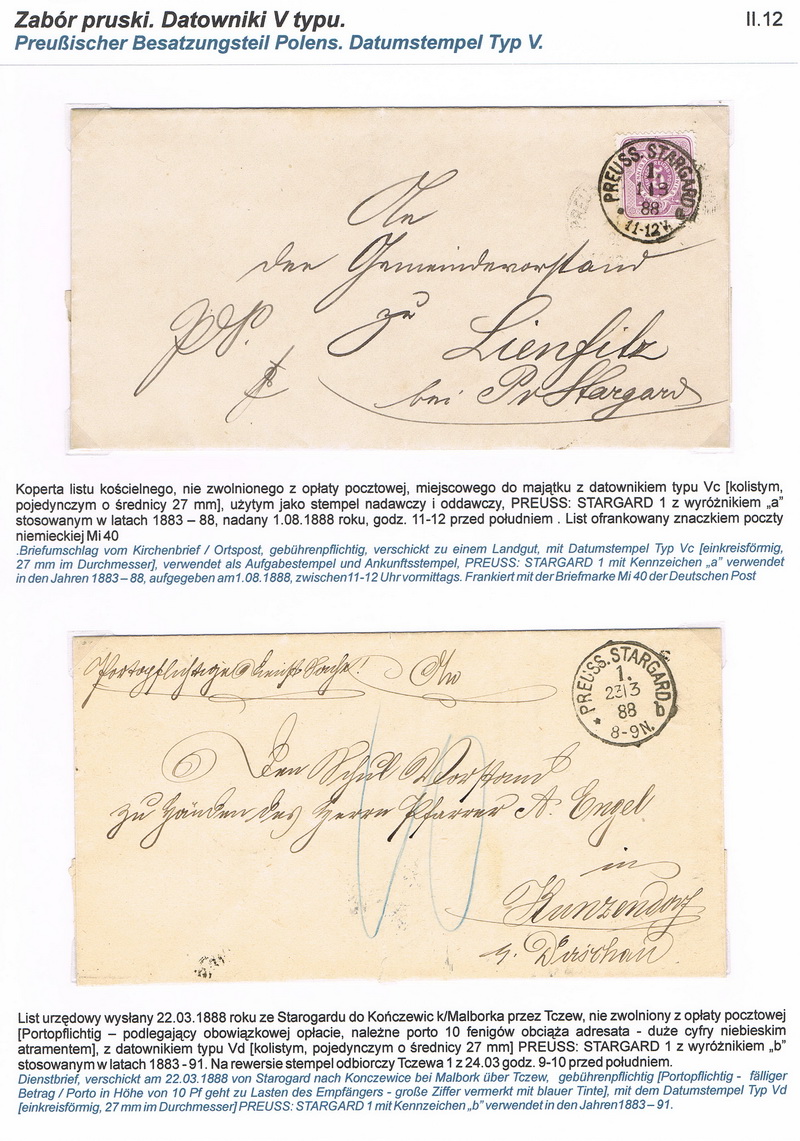 Zabór pruski. Datowniki V typu.
II.12
Preußischer Besatzungsteil Polens. Datumstempel Typ V.
PREUSS. STARGARD
1.
1 | 8
88
* 11-12V. a
An
den Gemeindevorstand
zu
Lienfitz
bei Pr Stargard
Koperta listu kościelnego, nie zwolnionego z opłaty pocztowej, miejscowego do majątku z datownikiem typu Vc [kolistym,
pojedynczym o średnicy 27 mm], użytym jako stempel nadawczy i oddawczy, PREUSS: STARGARD 1 z wyróżnikiem „a”
stosowanym w latach 1883 – 88, nadany 1.08.1888 roku, godz. 11-12 przed południem . List ofrankowany znaczkiem poczty
niemieckiej Mi 40
.Briefumschlag vom Kirchenbrief / Ortspost, gebührenpflichtig, verschickt zu einem Landgut, mit Datumstempel Typ Vc [einkreisförmig,
27 mm im Durchmesser], verwendet als Aufgabestempel und Ankunftsstempel, PREUSS: STARGARD 1 mit Kennzeichen „a” verwendet
in den Jahren 1883 – 88, aufgegeben am 1.08.1888, zwischen 11-12 Uhr vormittags. Frankiert mit der Briefmarke Mi 40 der Deutschen Post
PREUSS. STARGARD
1.
23|3
88
* 8-9N. b
Portopflichtige Dienst Sache! An
Den Schul Vorstand
zu Händen des Herrn Pfarrer A. Engel
in
Kunzendorf
Dirschau
10
List urzędowy wysłany 22.03.1888 roku ze Starogardu do Kończewic k/Malborka przez Tczew, nie zwolniony z opłaty pocztowej
[Portopflichtig – podlegający obowiązkowej opłacie, należne porto 10 fenigów obciąża adresata - duże cyfry niebieskim
atramentem], z datownikiem typu Vd [kolistym, pojedynczym o średnicy 27 mm] PREUSS: STARGARD 1 z wyróżnikiem „b”
stosowanym w latach 1883 - 91. Na rewersie stempel odbiorczy Tczewa 1 z 24.03 godz. 9-10 przed południem.
Dienstbrief, verschickt am 22.03.1888 von Starogard nach Konczewice bei Malbork über Tczew, gebührenpflichtig [Portopflichtig - fälliger
Betrag / Porto in Höhe von 10 Pf geht zu Lasten des Empfängers - große Ziffer vermerkt mit blauer Tinte], mit dem Datumstempel Typ Vd
[einkreisförmig, 27 mm im Durchmesser] PREUSS: STARGARD 1 mit Kennzeichen „b” verwendet in den Jahren 1883 – 91.